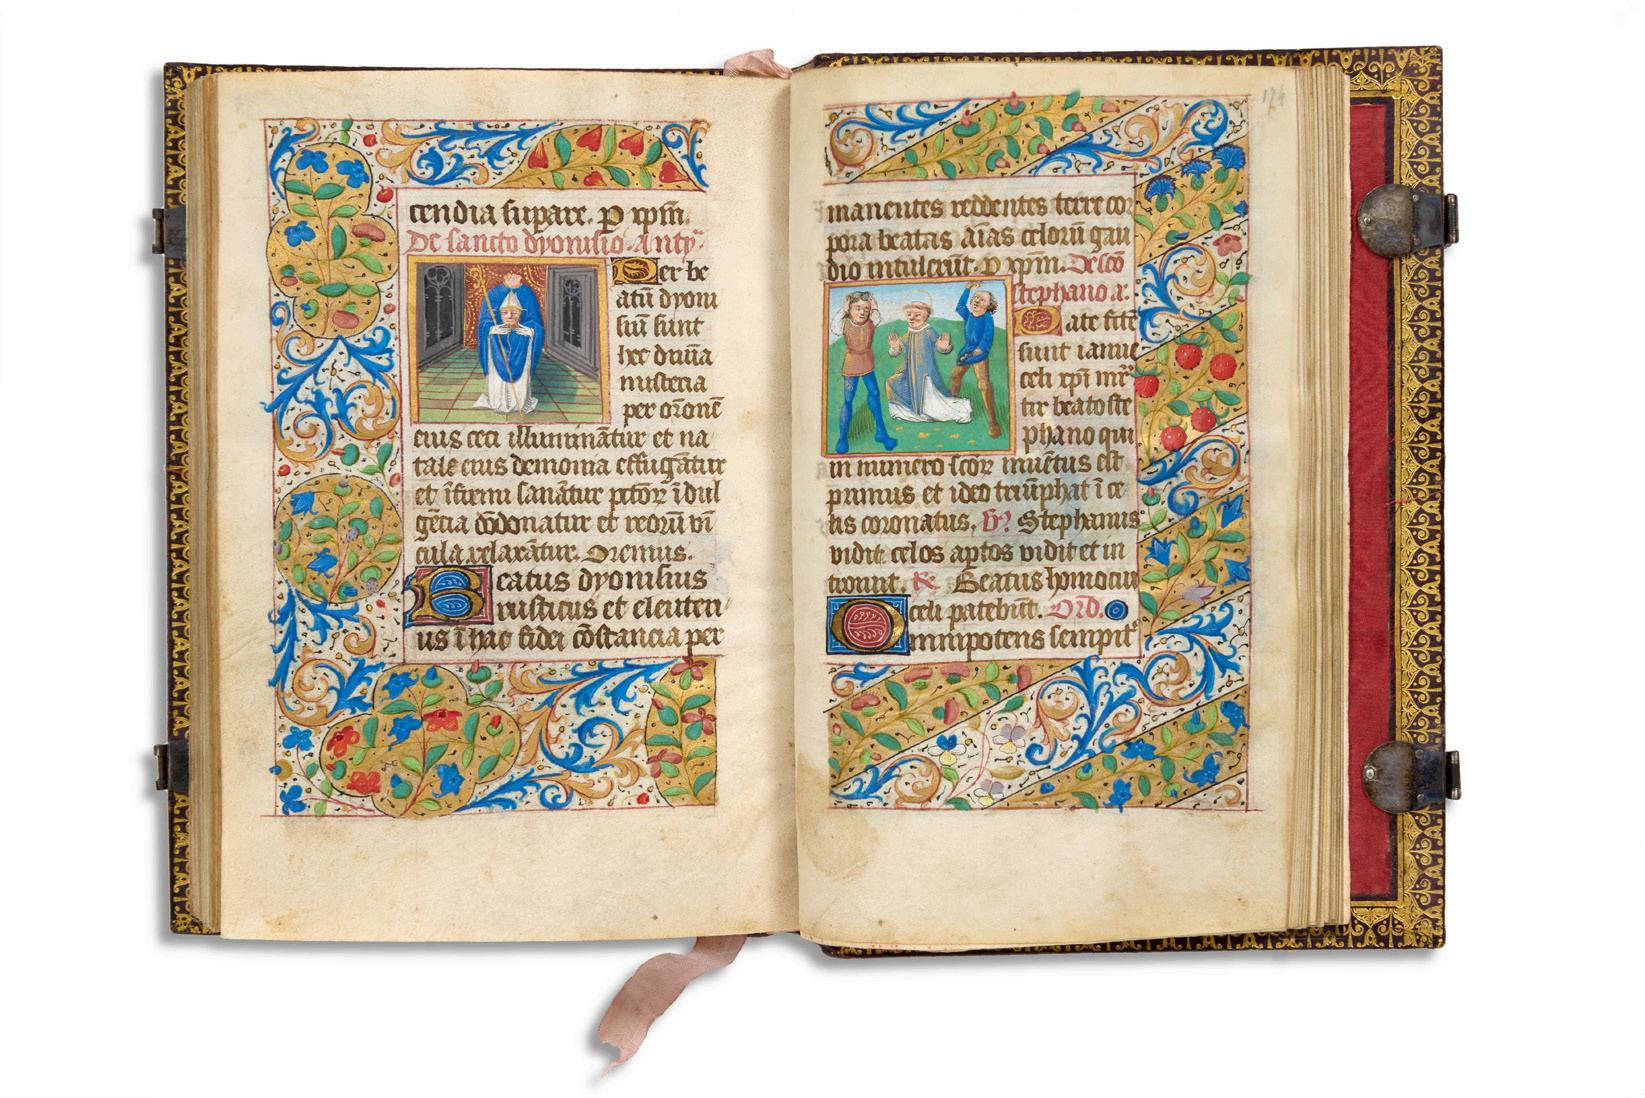 cendia supare. P xpm̄.
De sancto dyonisio. Antyᵃ.
Per be
atū dyoni
siū sunt
hec diuīa
misteria
per orōnē
eius ceci illuminātur et na
tale eius demonia effugātur
et īfirmi sanātur pctōꝝ īdul
gētia cōdonatur et reorū vī
cula relaxātur. Oremus.
Beatus dyonisius
rusticus et eleuteri
us ī hac fidei cōstancia per
174
manentes reddentes terre cor
pora beatas aīas celorū gau
dio intulerūt. p xpm̄. De scō
stephano a.
Pate fcē
sunt ianue
celi xpi mr̄
tir beato ste
phano qui
in numero scōꝝ inuētus est
primus et ideo triūphat ī ce
lis coronatus. V̄ Stephanus
vidit celos aptos vidit et in
troiuit. R̄ Beatus homo cui
celi patebūt. Orō.
Omnipotens sempit̄